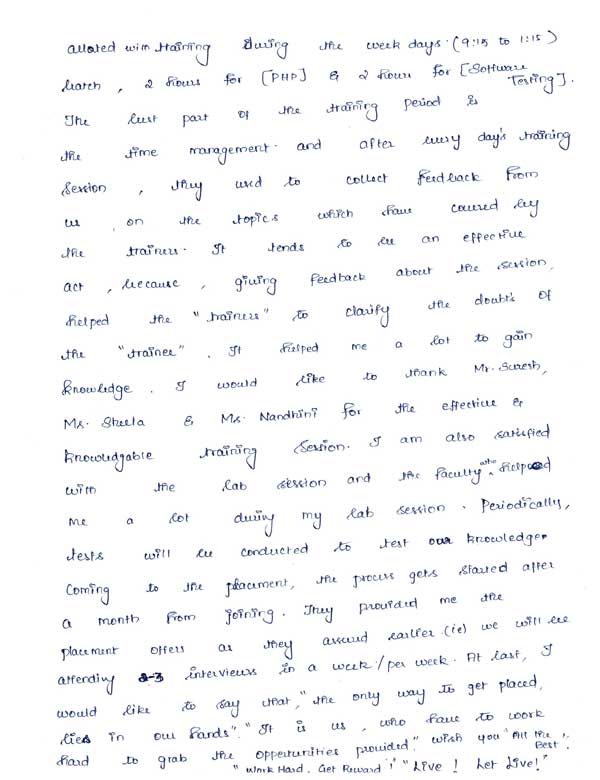 alloted with training during the week days (9:15 to 1:15)
batch, 2 hours for [PHP] & 2 hours for [Software Testing].
The best part of the training period is
the time management and after every day's training
session, they used to collect feedback from
us, on the topics which have covered by
the trainers. It tends to be an effective
act, because, giving feedback about the session,
helped the "trainers" to clarify the doubts of
the "trainee". It helped me a lot to gain
knowledge. I would like to thank Mr. Suresh,
Ms. Sheela & Ms. Nandhini for the effective &
knowledgable training session. I am also satisfied
with the lab session and the faculty who helped
me a lot during my lab session. Periodically,
tests will be conducted to test our knowledge.
Coming to the placement, the process gets started after
a month from joining. They provided me the
placement offers as they assured earlier (ie) we will be
attending 2-3 interviews in a week/per week. At last, I
would like to say that, "the only way to get placed,
lies in our hands". "It is us, who have to work
hard to grab the oppertunities provided." wish you "All the Best".
"Work Hard, Get Reward"! "Live! Let Live!"